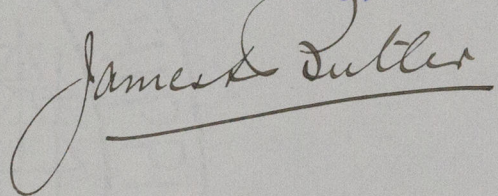 James Butler